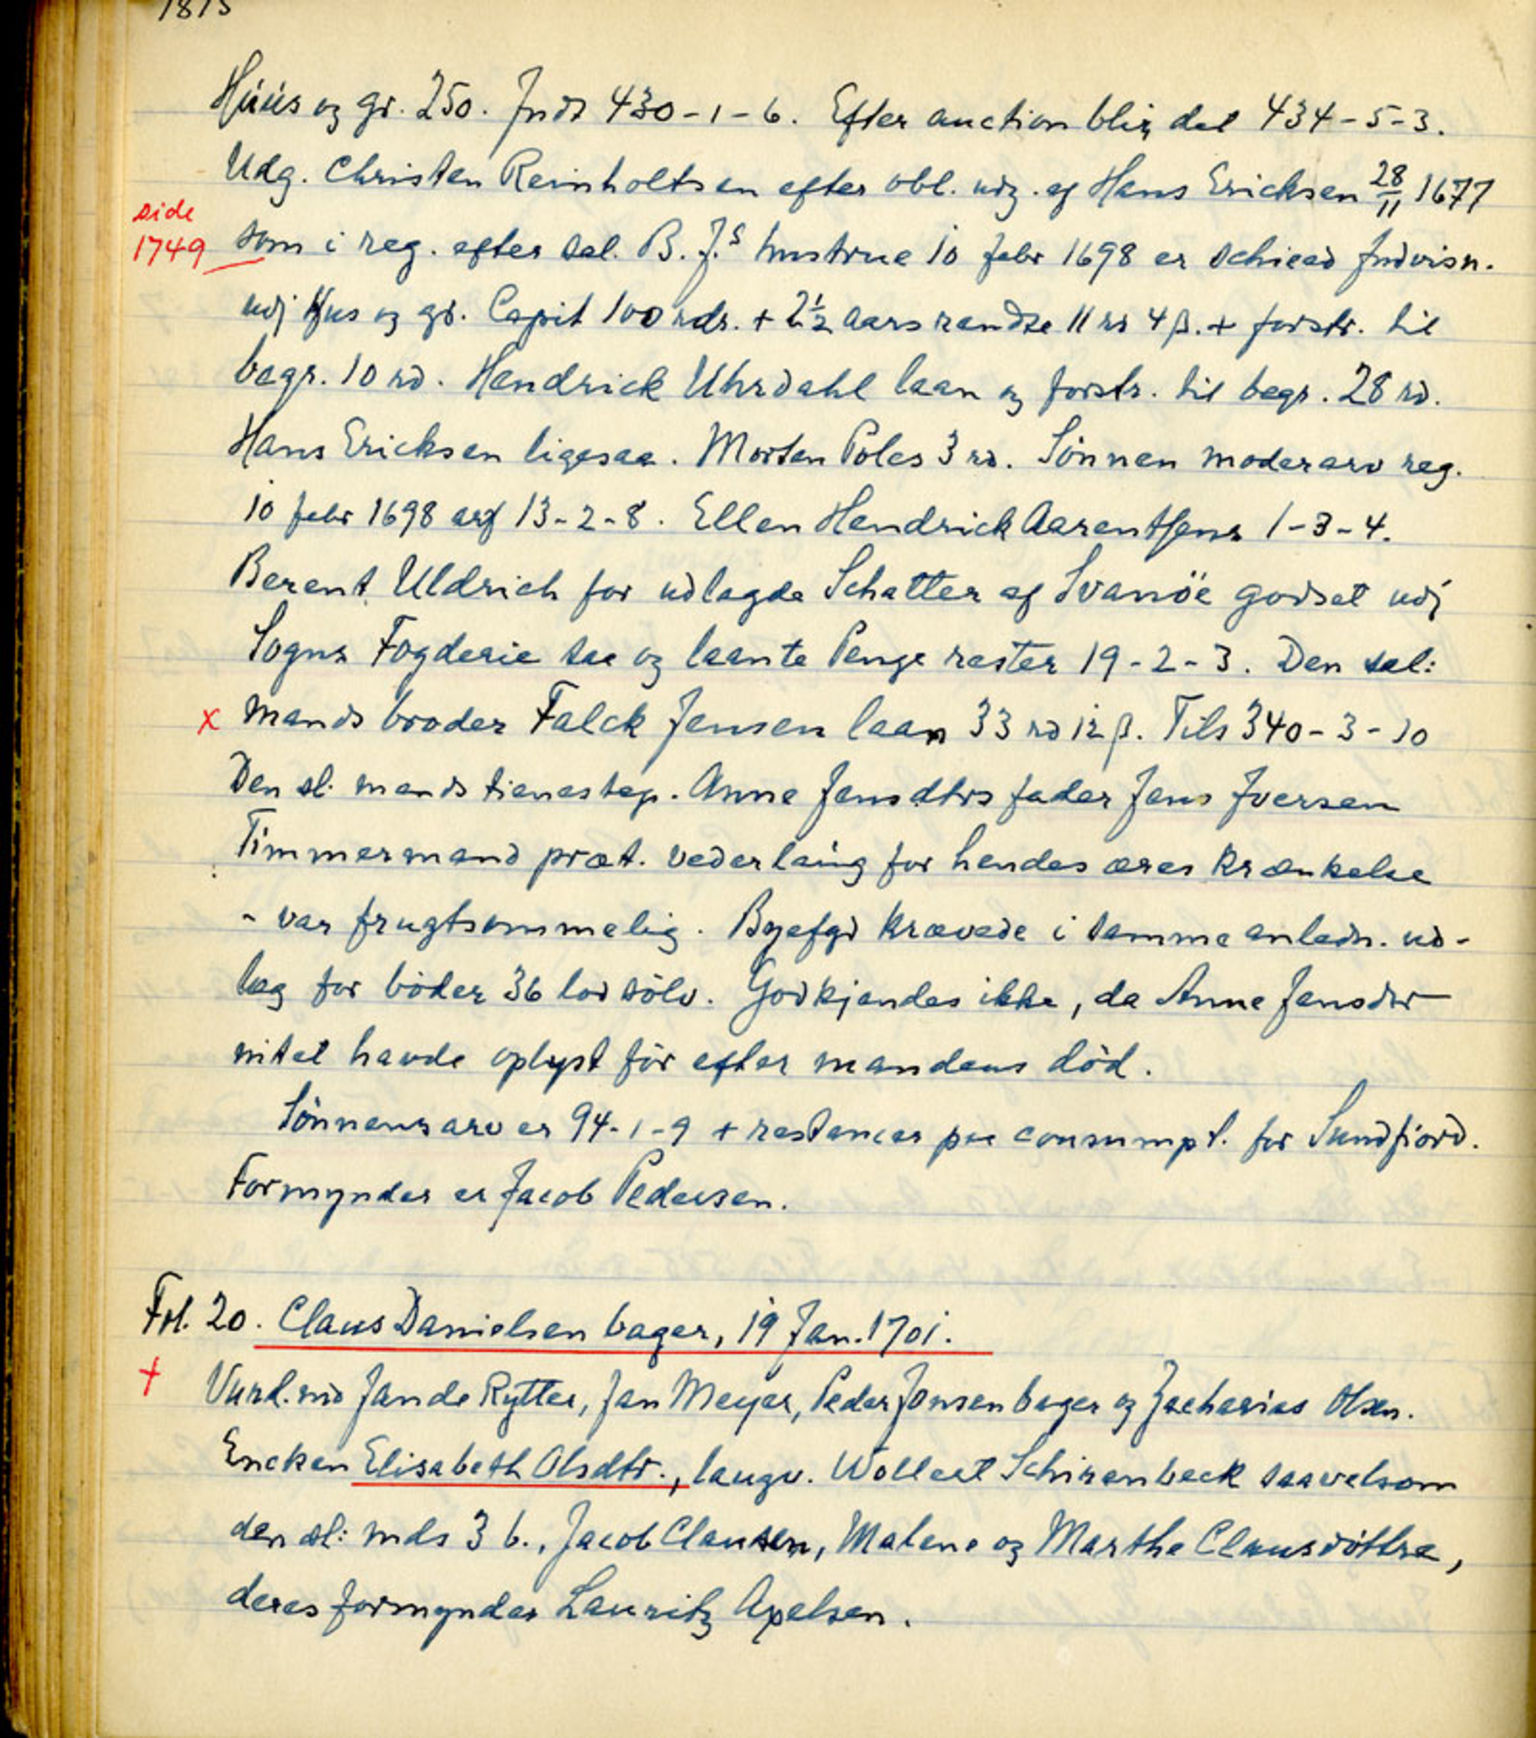 1815
Huus og gr. 250. Indt 430-1-6. Efter auction blir det 434-5-3.
Udg. Christen Reinholtsen efter obl. udg. af Hans Ericksen 28/11 1677
side
1749 som i reg. efter sal. B. J.s hustrue 10 febr 1698 er schiead Indvisn.
udj Hus og gr. Capit 100 rdr. + 2½ aars rendte 11 rd 4 β. + forstr. til
begr. 10 rd. Hendrick Uhrdahl laan og forstr. til begr. 28 rd.
Hans Ericksen ligesaa. Morten Poles 3 rd. Sönnen moderarv reg.
10 febr 1698 arf 13-2-8. Ellen Hendrick Aarentsens 1-3-4.
Berent Uldrich for udlagde Schatter af Svanöe godset udj
Sogns Fogderie saa og laante Penge rester 19-2-3. Den sal:
x mands broder Falck Jensen laan 33 rd 12 β. Tils 340-3-10
Den sl. mands tienestep. Anne Jensdtrs fader Jens Iversen
Timmermand præt. vederlaug for hendes æres krænkelse
- var frugtsommelig. Byefgd krævede i samme anledn. ud-
læg for böder 36 lod sölv. Godkjendes ikke, da Anne Jensdtr
intet havde oplyst för efter mandens död.
Sönnens arv er 94-1-9 + restancer paa consumpt. for Sundfiord.
Formynder er Jacob Pedersen.
Fol. 20. Claus Danielsen bager, 19 Jan. 1701.
+ Vurd. md Jan de Rytter, Jan Meyer, Peder Jonsen bager og Zacharias Olsen.
Encken Elisabeth Olsdtr., laugv. Wollert Schirenbeck saavelsom
den sl: mds 3 b., Jacob Clausen, Malene og Marthe Clausdöttre,
deres formynder Lauritz Axelsen.